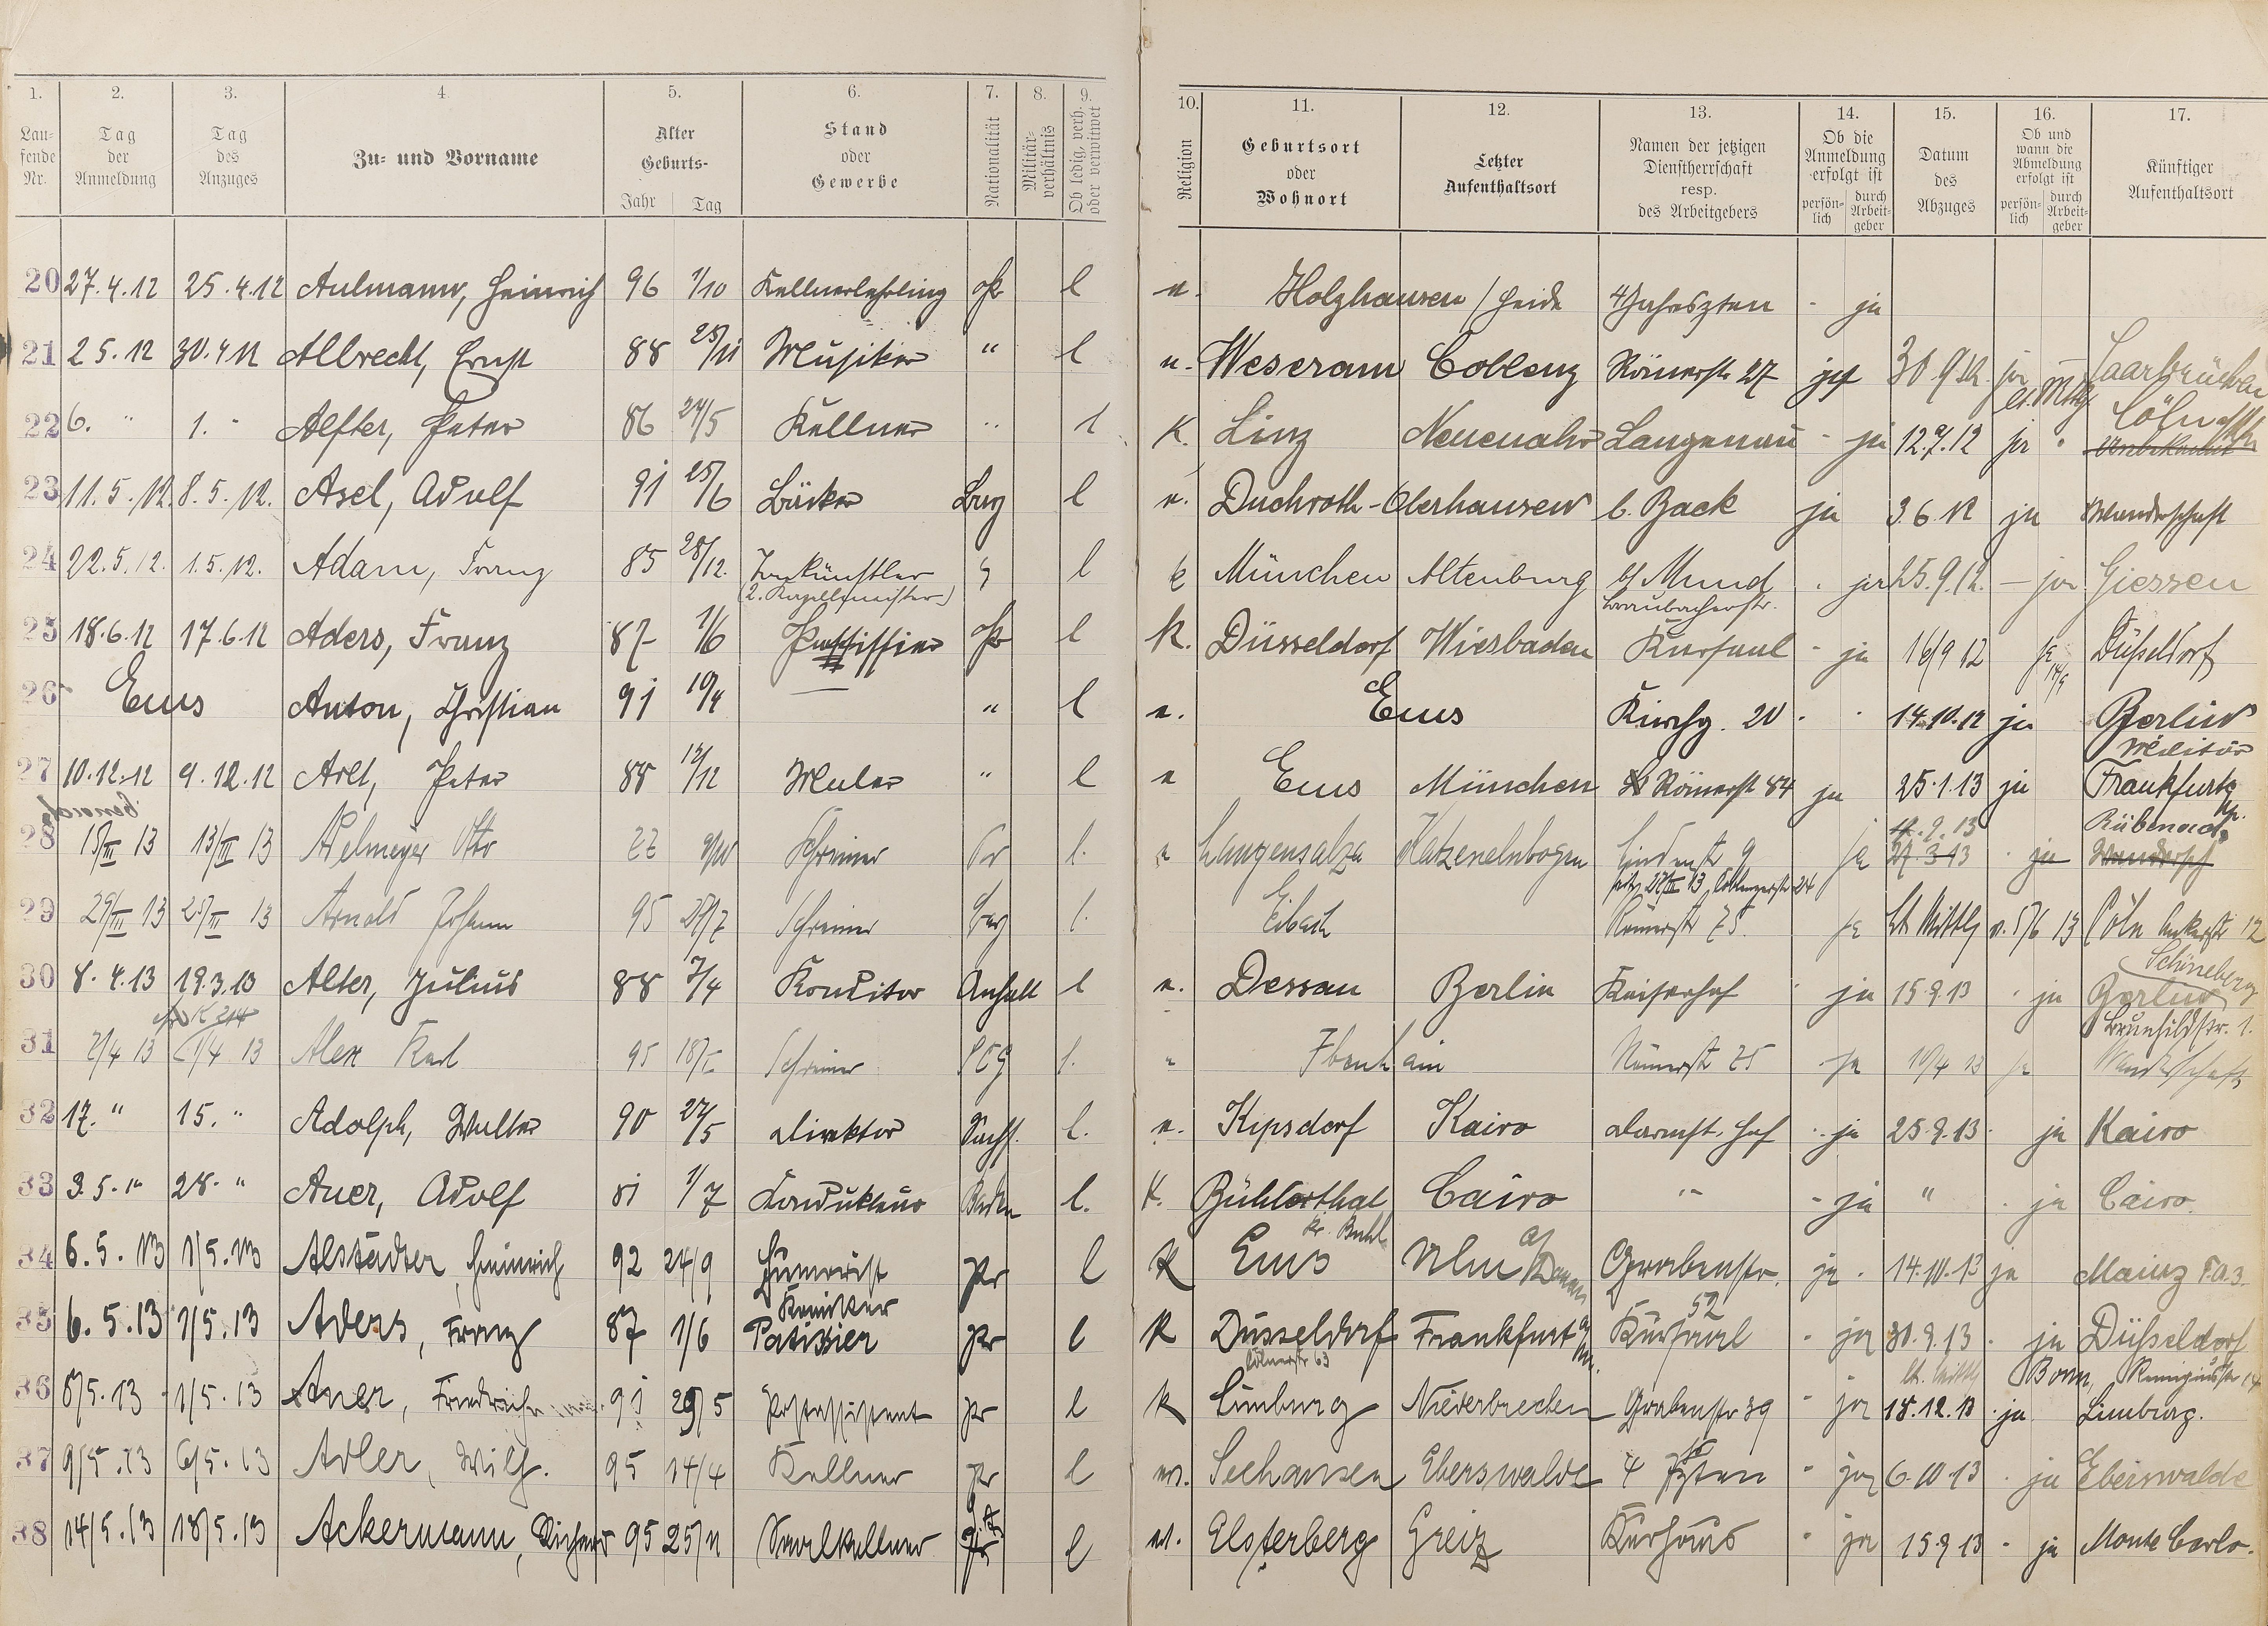 1. 2. 3. 4. 5. 6. 7. 8. 9. 10. 11. 12. 13. 14. 15. 16. 17.
Lau-fende Nr. Tag der Anmeldung Tag des Anzuges Zu- und Vorname Alter Geburts- Jahr Tag Stand oder Gewerbe Nationalität Militär-verhältnis Ob ledig, verh. oder verwitwet Religion Geburtsort oder Wohnort Letzter Aufenthaltsort Namen der jetzigen Dienstherrschaft resp. des Arbeitgebers Ob die Anmeldung erfolgt ist persön-lich durch Arbeit-geber Datum des Abzuges Ob und wann die Abmeldung erfolgt ist persön-lich durch Arbeit-geber Künftiger Aufenthaltsort
20 27.4.12 25.4.12 Aulmann, Heinrich 96 1/10 Kellnerlehrling Pr l e. Holzhausen / Heide 4 Jahreszten - ja
21 2 5.12 30.4 12 Albrecht, Ernst 88 25/11 Musiker " l e. Weseram Coblenz Römerstr 27 ja 30 9 12. ja — Saarbrücken
22 6. " 1. " Alfter, Peter 86 24/5 Kellner " l K. Linz Neuenahr Langenau - ja 12.9.12 ja " lt. Mttlg Cöln
23 11.5.12. 8.5.12. Asel, Adolf 91 25/6 Bäcker Bay l e. Duchroth-Oberhausen b. Back ja 3.6.12 ja Wanderschaft
24 22.5.12. 1.5.12. Adam, Franz 85 28/12. Tonkünstler (2. Kapellmeister) " l k München Altenburg b/ Mund Braubacherstr. . ja 25.9.12. — ja Giessen
25 18.6.12 17.6.12 Aders, Franz 87 1/6 Pr l K. Düsseldorf Wiesbaden Kursaal - ja 16/9 12 ja 14/9 Düsseldorf
26 Ems Anton, Christian 91 10/4 — " l e. Ems Kirchg. 20 . . 14.10.12 ja Berlin
27 10.12.12 9.12.12 Arlt, Peter 88 12/12 Maler " l e Ems München Römerstr 84 ja 25.1.13 ja Frankfurt
28 15/III 13 13/III 13 Adelmeyer Otto Schreiner Pr l. e Langensalza Katzenelnbogen Lindenstr 9 jetzt 27/III 13, Coblenzerstr 24 ja 27.3.13 . ja Rübenach Wandersch
29 29/III 13 25/III 13 Arnold Johann 95 29/7 Schreiner Bay l. Eibach Römerstr 75 ja lt Mittlg v. 5/6 13 Cöln Ankerstr 12
30 8.4.13 19.3.13 Alter, Julius 88 7/4 Konditor Anhalt l e. Dessau Berlin Kaiserhof - ja 15.9.13 . ja Schöneberg Berlin Brunhildstr. 1.
31 2/4 13 1/4 13 Alex Karl 95 18/5 Schreiner SCG l. " Ibenhain Römerstr 75 - ja 10/4 13 ja Wanderschaft
32 17. " 15. " Adolph, Walter 90 27/5 Direktor Sachs. l. e. Kipsdorf Kairo Darmst. Hof - ja 25.9.13. ja Kairo
33 3.5." 28. " Auer, Adolf 81 1/7 Kondukteur Baden l. K. Bühlerthal Kr. Buhl Cairo " - ja " . ja Cairo.
34 6.5.13 1/5.13 Alstädter, Heinrich 92 24/9 Humorist Komiker pr l k Ems Ulm a/ Donau Grabenstr. 52 ja . 14.10.13 ja Mainz F.a.3.
35 6.5.13 1/5.13 Aders, Franz 87 1/6 Patissier pr l k Düsseldorf Cölnerstr 63 Frankfurt a/ M. Kursaal - ja 30.9.13 . ja Düsseldorf
36 8/5.13 1/5.13 Auer, Friedrich 91 29/5 Postassistent pr l k Limburg Niederbrechen Grabenstr 39 - ja lt. Mittlg 18.12.13 . ja Bonn, Remigiusstr 14 Limburg.
37 9/5.13 6/5.13 Adler, Wilh. 95 14/4 Kellner pr l ev. Seehausen Eberswalde 4 Jhzten - ja 6.10 13 . ja Eberswalde
38 14/5.13 13/5.13 Ackermann, Richard 95 25/11 Saalkellner l ev. Elsterberg Greiz Kurhaus - ja 15.9 13 - ja Monte Carlo.